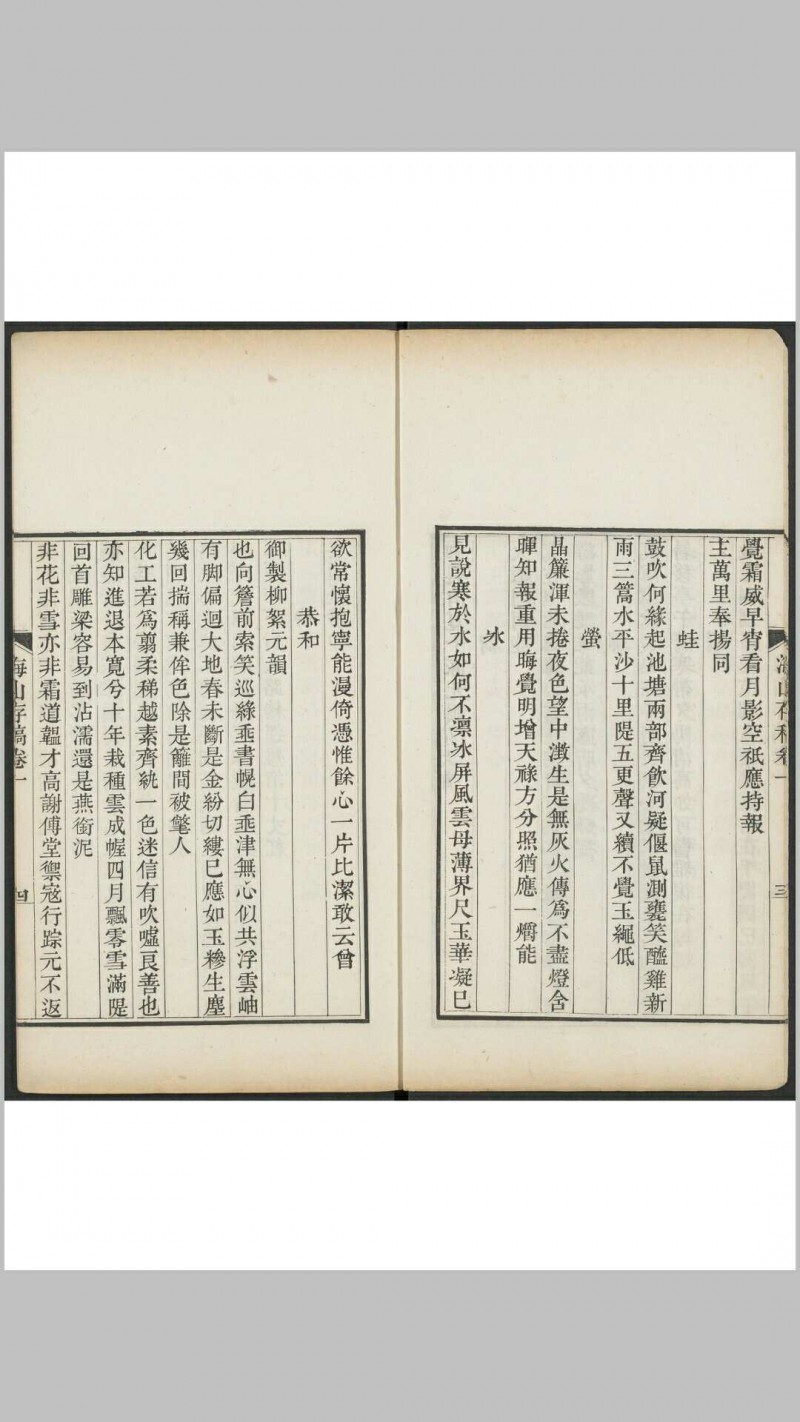 海山存稿卷一
三
覺霜威早宵看月影空祇應持報
主萬里奉揚同
蛙
鼓吹何緣起池塘兩部齊飲河疑偃鼠測甕笑醯雞新
雨三篙水平沙十里隄五更聲又續不覺玉繩低
螢
晶簾渾未捲夜色望中澂生是無灰火傳爲不盡燈含
暉知報重用晦覺明增天祿方分照猶應一爝能
氷
見說寒於水如何不凛氷屏風雲母薄界尺玉華凝已
欲常懷抱寧能漫倚憑惟餘心一片比潔敢云曾
恭和
御製柳絮元韻
也向簷前索笑巡緣垂書幌白垂津無心似共浮雲岫
有脚偏迴大地春未斷是金紛切縷已應如玉糝生塵
幾回揣稱兼侔色除是籬間被氅人
化工若爲翦柔稊越素齊紈一色迷信有吹噓良善也
亦知進退本寬兮十年栽種雲成幄四月飄零雪滿隄
回首雕梁容易到沾濡還是燕銜泥
非花非雪亦非霜道韞才高謝傅堂禦寇行踪元不返
海山存稿卷一
四